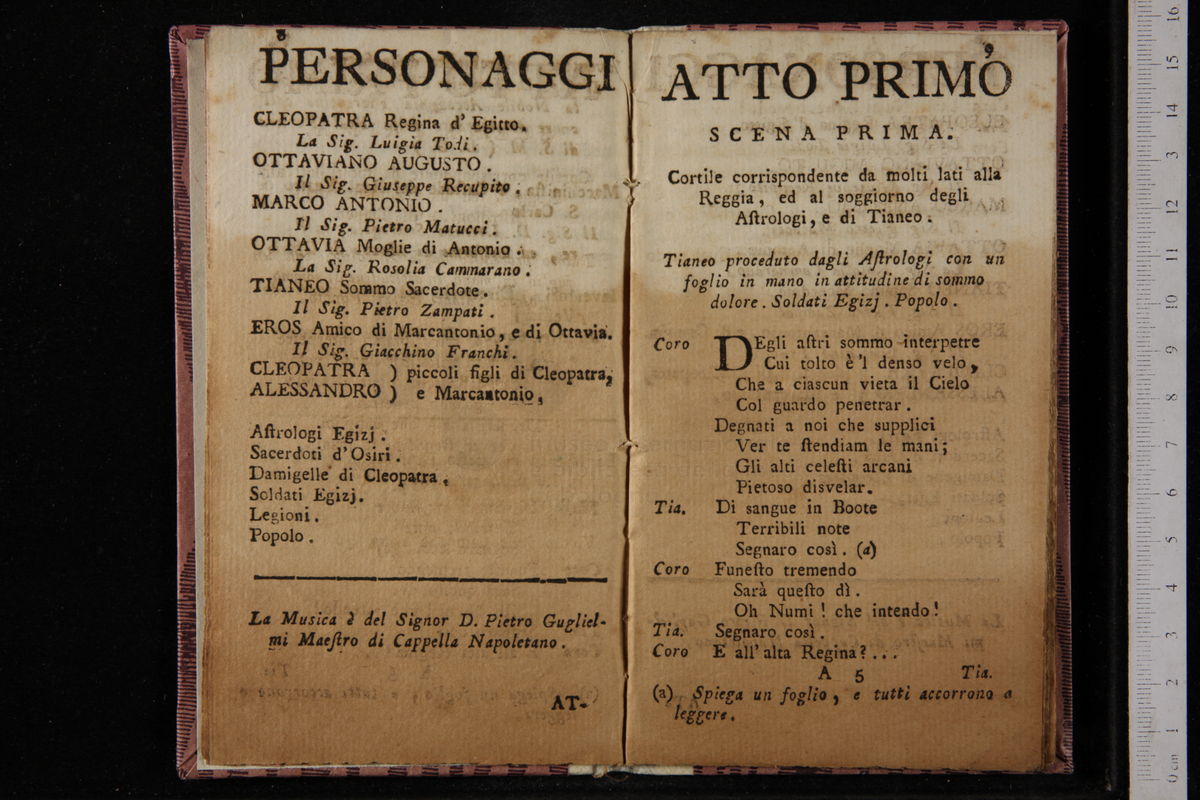 8
PERSONAGGI
CLEOPATRA Regina d' Egitto.
La Sig. Luigia Todi.
OTTAVIANO AUGUSTO.
Il Sig. Giuseppe Recupito.
MARCO ANTONIO.
Il Sig. Pietro Matucci.
OTTAVIA Moglie di Antonio.
La Sig. Rosolia Cammarano.
TIANEO Sommo Sacerdote.
Il Sig. Pietro Zampati.
EROS Amico di Marcantonio, e di Ottavia.
Il Sig. Giacchino Franchi.
CLEOPATRA ) piccoli figli di Cleopatra,
ALESSANDRO ) e Marcantonio,
Aſtrologi Egizj.
Sacerdoti d'Osiri.
Damigelle di Cleopatra,
Soldati Egizj.
Legioni.
Popolo.
La Musica è del Signor D. Pietro Gugliel-
mi Maeſtro di Cappella Napoletano.
AT-
9
ATTO PRIMO
SCENA PRIMA.
Cortile corrispondente da molti lati alla
Reggia, ed al soggiorno degli
Aſtrologi, e di Tianeo.
Tianeo proceduto dagli Aſtrologi con un
foglio in mano in attitudine di sommo
dolore. Soldati Egizj. Popolo.
Coro DEgli aſtri sommo interpetre
Cui tolto è 'l denso velo,
Che a ciascun vieta il Cielo
Col guardo penetrar.
Degnati a noi che supplici
Ver te ſtendiam le mani;
Gli alti celeſti arcani
Pietoso disvelar.
Tia. Di sangue in Boote
Terribili note
Segnaro così. (a)
Coro Funeſto tremendo
Sarà queſto dì.
Oh Numi! che intendo!
Tia. Segnaro così.
Coro E all' alta Regina?...
A 5 Tia.
(a) Spiega un foglio, e tutti accorrono a
leggere.
0 cm 1 2 3 4 5 6 7 8 9 10 11 12 13 14 15 16